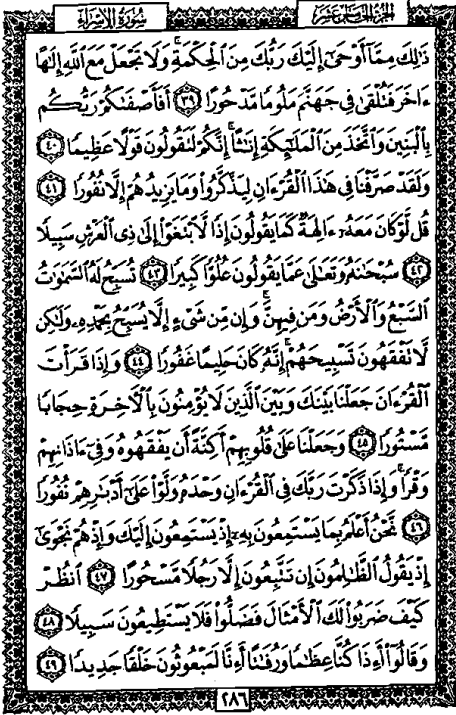 سُورَةُ الْإِسْرَاءِ
الجزء الخامس عشر
ذَٰلِكَ مِمَّا أَوْحَىٰ إِلَيْكَ رَبُّكَ مِنَ ٱلْحِكْمَةِ ۗ وَلَا تَجْعَلْ مَعَ ٱللَّهِ إِلَٰهًا
ءَاخَرَ فَتُلْقَىٰ فِى جَهَنَّمَ مَلُومًا مَّدْحُورًا ٣٩ أَفَأَصْفَىٰكُمْ رَبُّكُم
بِٱلْبَنِينَ وَٱتَّخَذَ مِنَ ٱلْمَلَٰٓئِكَةِ إِنَٰثًا ۚ إِنَّكُمْ لَتَقُولُونَ قَوْلًا عَظِيمًا ٤٠
وَلَقَدْ صَرَّفْنَا فِى هَٰذَا ٱلْقُرْءَانِ لِيَذَّكَّرُوا۟ وَمَا يَزِيدُهُمْ إِلَّا نُفُورًا ٤١
قُل لَّوْ كَانَ مَعَهُۥٓ ءَالِهَةٌ كَمَا يَقُولُونَ إِذًا لَّٱبْتَغَوْا۟ إِلَىٰ ذِى ٱلْعَرْشِ سَبِيلًا
٤٢ سُبْحَٰنَهُۥ وَتَعَٰلَىٰ عَمَّا يَقُولُونَ عُلُوًّا كَبِيرًا ٤٣ تُسَبِّحُ لَهُ ٱلسَّمَٰوَٰتُ
ٱلسَّبْعُ وَٱلْأَرْضُ وَمَن فِيهِنَّ ۚ وَإِن مِّن شَىْءٍ إِلَّا يُسَبِّحُ بِحَمْدِهِۦ وَلَٰكِن
لَّا تَفْقَهُونَ تَسْبِيحَهُمْ ۗ إِنَّهُۥ كَانَ حَلِيمًا غَفُورًا ٤٤ وَإِذَا قَرَأْتَ
ٱلْقُرْءَانَ جَعَلْنَا بَيْنَكَ وَبَيْنَ ٱلَّذِينَ لَا يُؤْمِنُونَ بِٱلْءَاخِرَةِ حِجَابًا
مَّسْتُورًا ٤٥ وَجَعَلْنَا عَلَىٰ قُلُوبِهِمْ أَكِنَّةً أَن يَفْقَهُوهُ وَفِىٓ ءَاذَانِهِمْ
وَقْرًا ۚ وَإِذَا ذَكَرْتَ رَبَّكَ فِى ٱلْقُرْءَانِ وَحْدَهُۥ وَلَّوْا۟ عَلَىٰٓ أَدْبَٰرِهِمْ نُفُورًا
٤٦ نَّحْنُ أَعْلَمُ بِمَا يَسْتَمِعُونَ بِهِۦٓ إِذْ يَسْتَمِعُونَ إِلَيْكَ وَإِذْ هُمْ نَجْوَىٰٓ
إِذْ يَقُولُ ٱلظَّٰلِمُونَ إِن تَتَّبِعُونَ إِلَّا رَجُلًا مَّسْحُورًا ٤٧ ٱنظُرْ
كَيْفَ ضَرَبُوا۟ لَكَ ٱلْأَمْثَالَ فَضَلُّوا۟ فَلَا يَسْتَطِيعُونَ سَبِيلًا ٤٨
وَقَالُوٓا۟ أَءِذَا كُنَّا عِظَٰمًا وَرُفَٰتًا أَءِنَّا لَمَبْعُوثُونَ خَلْقًا جَدِيدًا ٤٩
٢٨٦